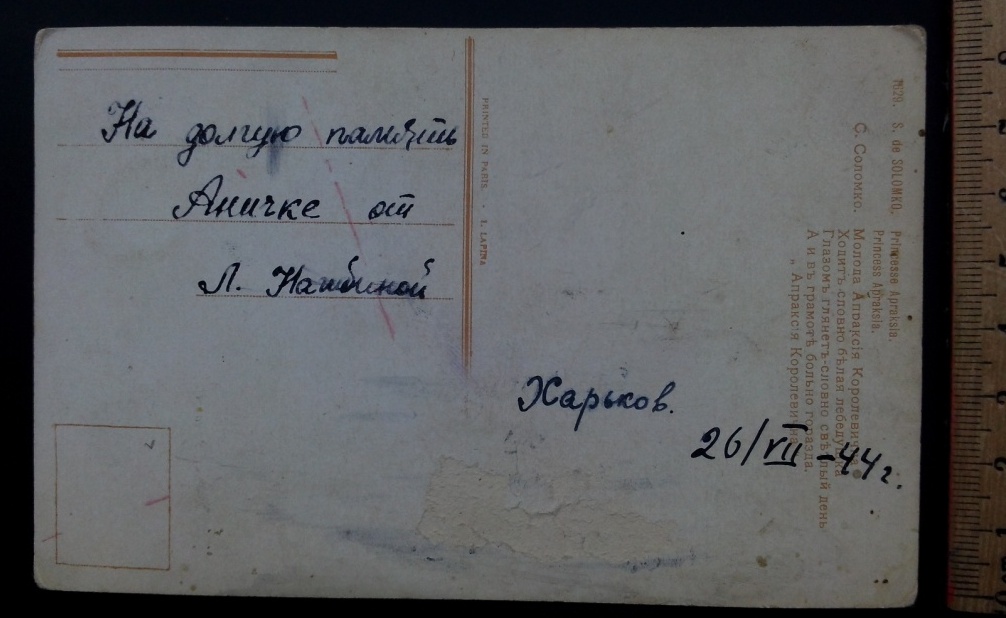 На долгую память
Аничке от
Л.
Харьков.
26/VII-44 г.
PRINTED IN PARIS. · I. LAPINA
S. de SOLOMKO. Princesse Apraksia.
Princess Apraksia.
С. Соломко. Молода Апраксія Королевична
Ходитъ словно бѣлая лебедушка
Глазомъ глянетъ-словно свѣтлый день
А и въ грамотѣ больно горазда.
„Апраксія Королевична